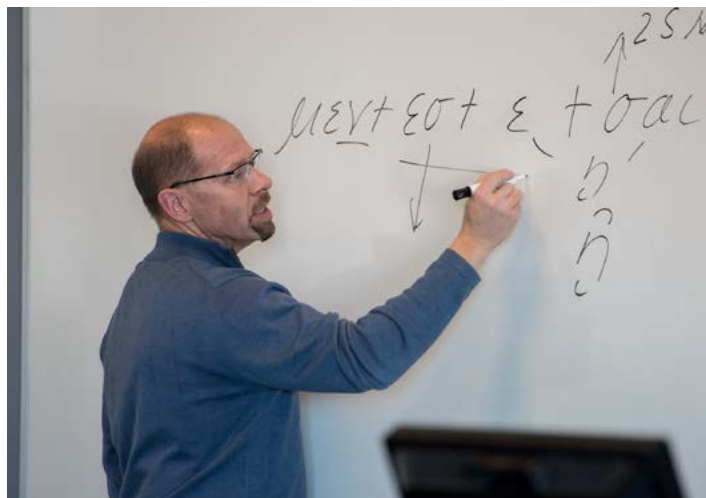 2S
μεν + εσ + ε + σαι
η
ῃ